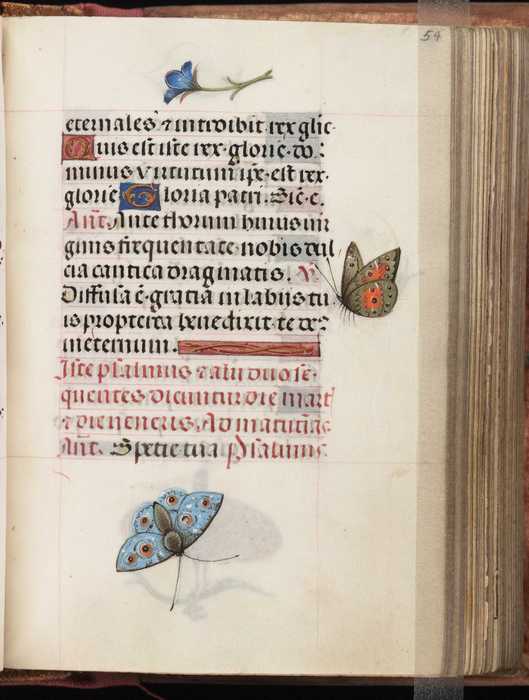 54
eternales ⁊ introibit rex glie·
Quis est iste rex glorie· do⁚
minus virtutum ip̄e est rex·
glorie· Gloria patri. Sic̄ e.
An̄t. Ante thorum huius vir
ginis frequentate nobis dul
cia cantica dragmatis. V̄
Diffusa ē gracia in labijs tu
is propterea benedixit te de⁹
in eternum.
Iste psalmus ⁊ alij duo se·
quentes dicuntur die mart̄
⁊ die veneris. Ad matutinas
An̄t. Specie tua psalmus.